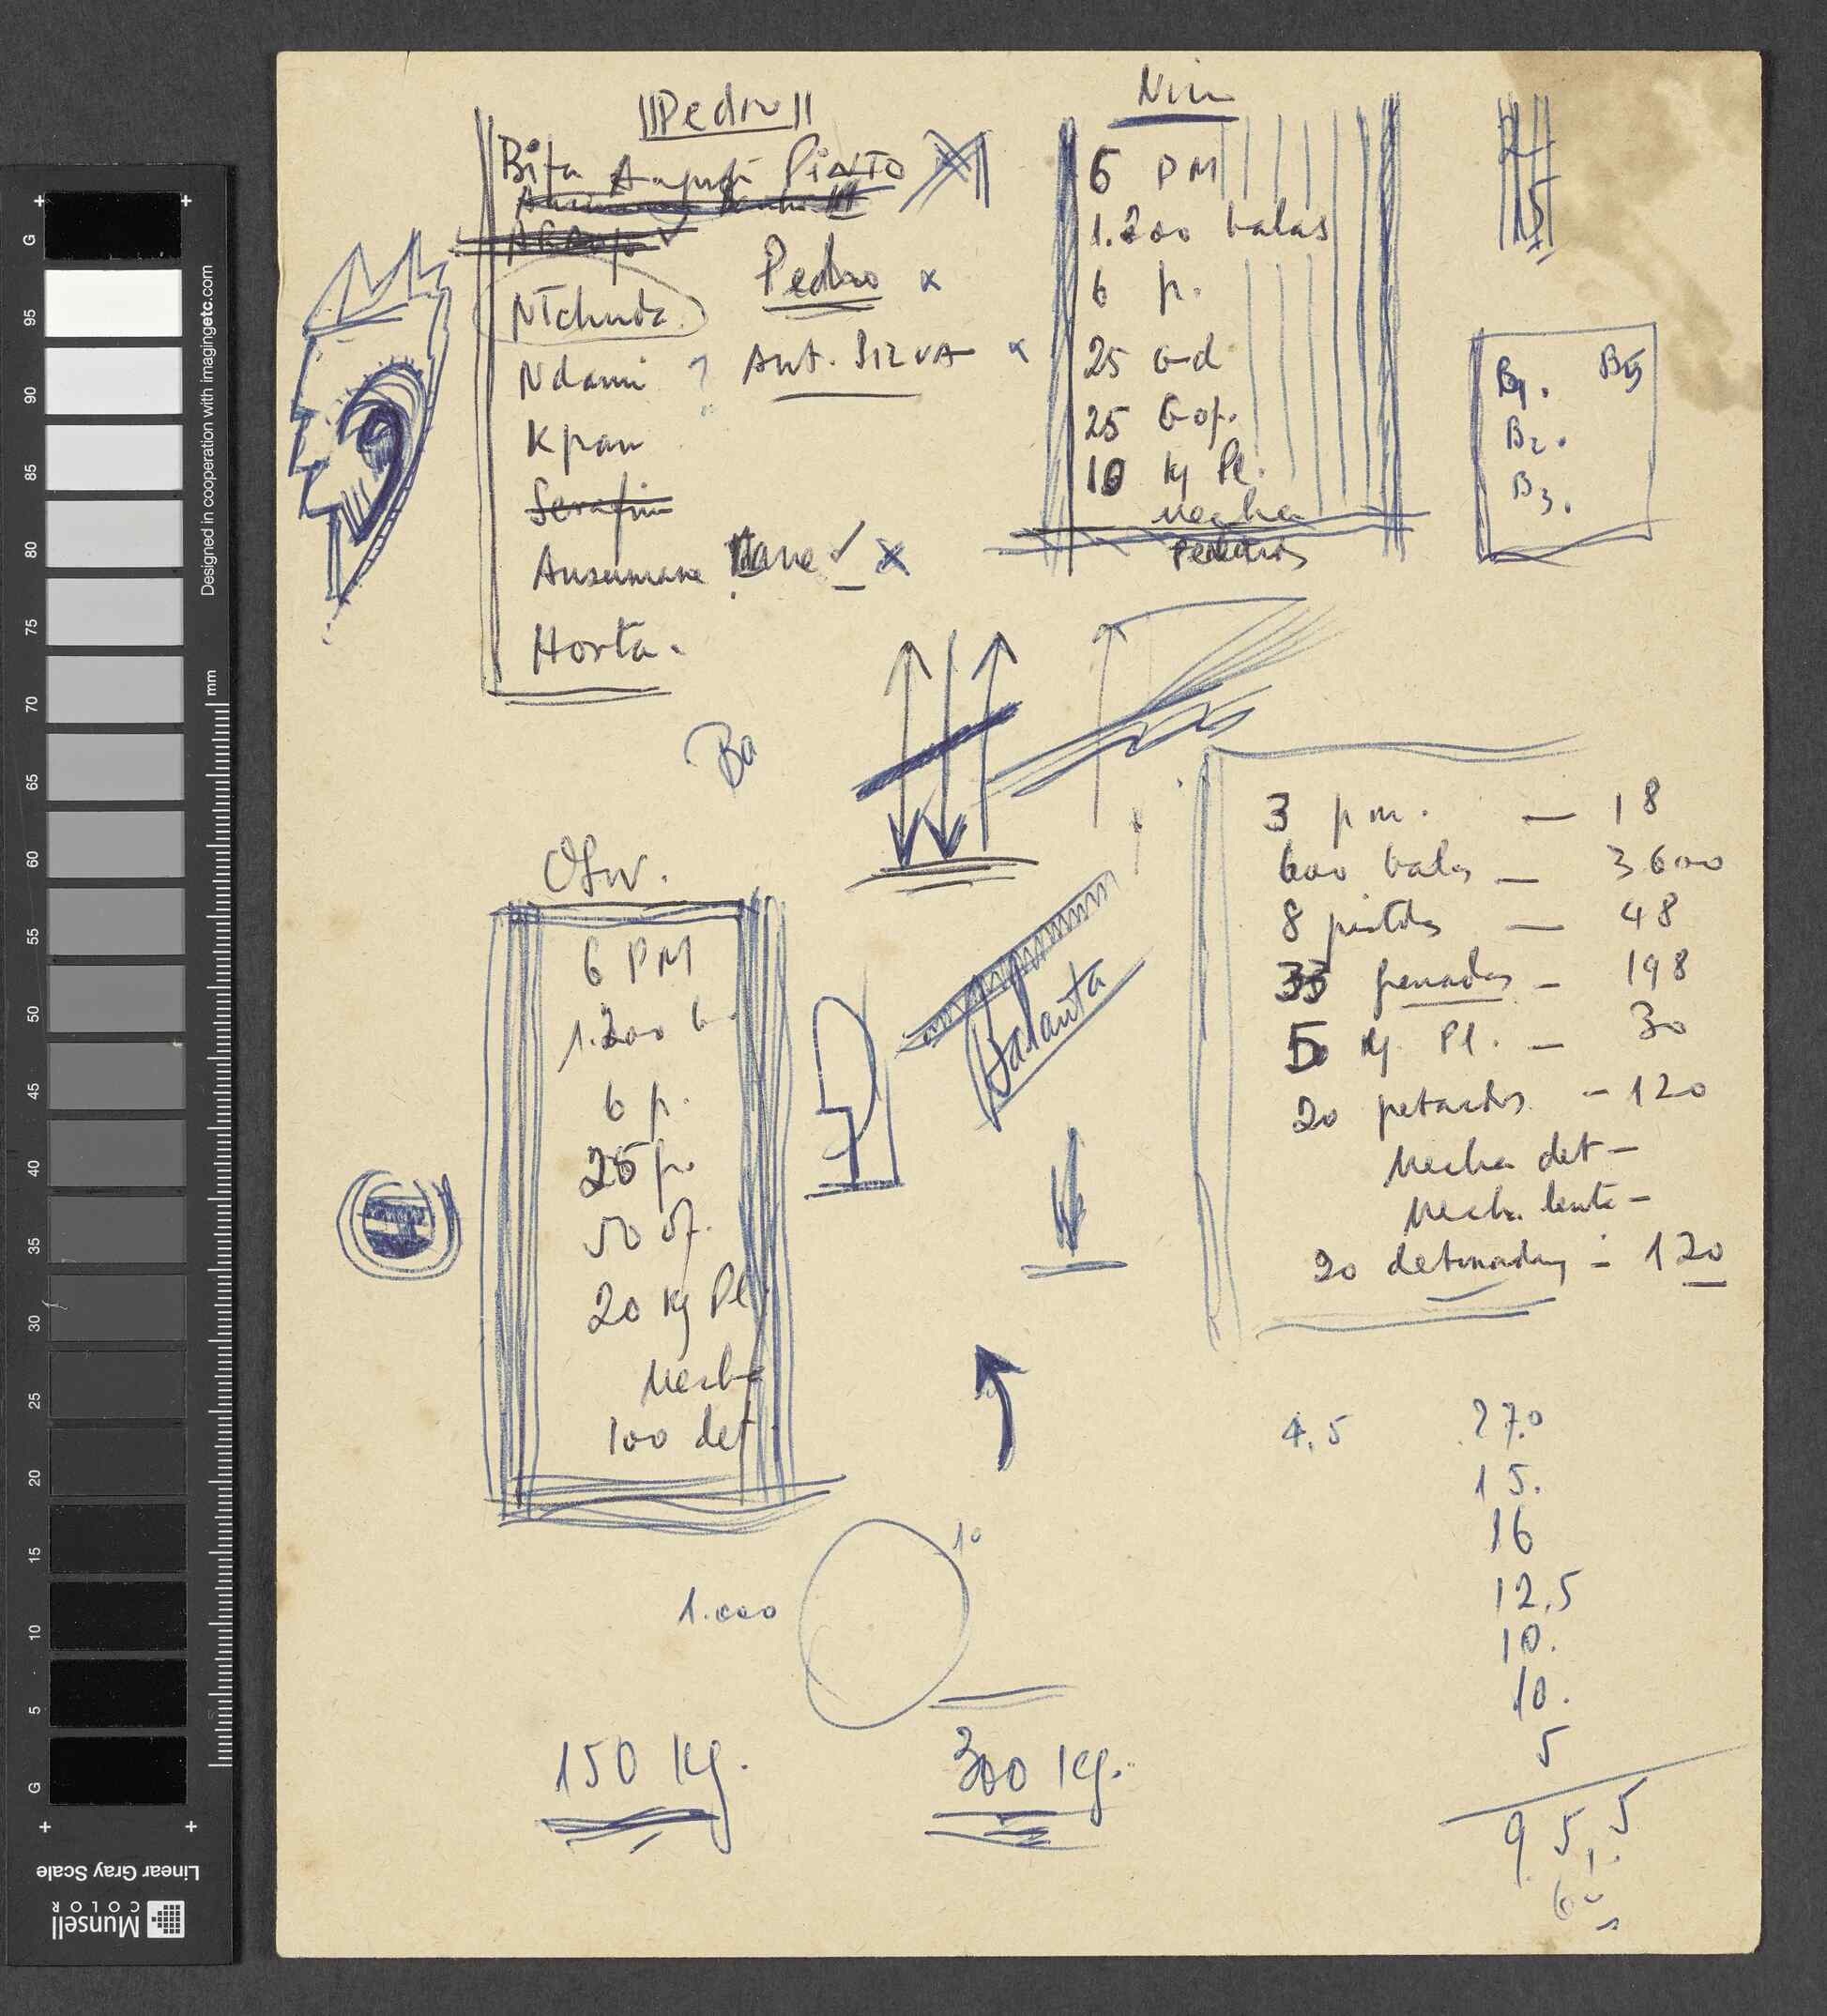 Pedro
Bita August PiNTO
NTchuda.
Pedro x
Ndami ? Ant. SILVA x
Kpan
Serafim
Ansumane Mane ✓ x
Horta.
Nin
6 PM
1.200 balas
6 p.
25 G d
25 G of.
10 kg Pl.
mecha
15
B1. B5
B2.
B3.
Ba
Balanta
Osv.
6 PM
1.200 b
6 p.
25 p.
50 of.
20 kg Pl
Mecha
100 det
3 pm. — 18
600 balas — 3600
8 pistolas — 48
33 granadas — 198
5 kg. Pl. — 30
20 petardos. — 120
Mecha det —
Mecha lenta —
20 detonadores — 120
4,5 27.0
15.
16
12,5
10.
10.
5
95,5
10
1.000
150 Kg.
300 Kg.
Designed in cooperation with imagingetc.com
mm
G 95 90 85 80 75 70 65 60 55 50 45 40 35 30 25 20 15 10 5 G
Linear Gray Scale
Munsell
COLOR